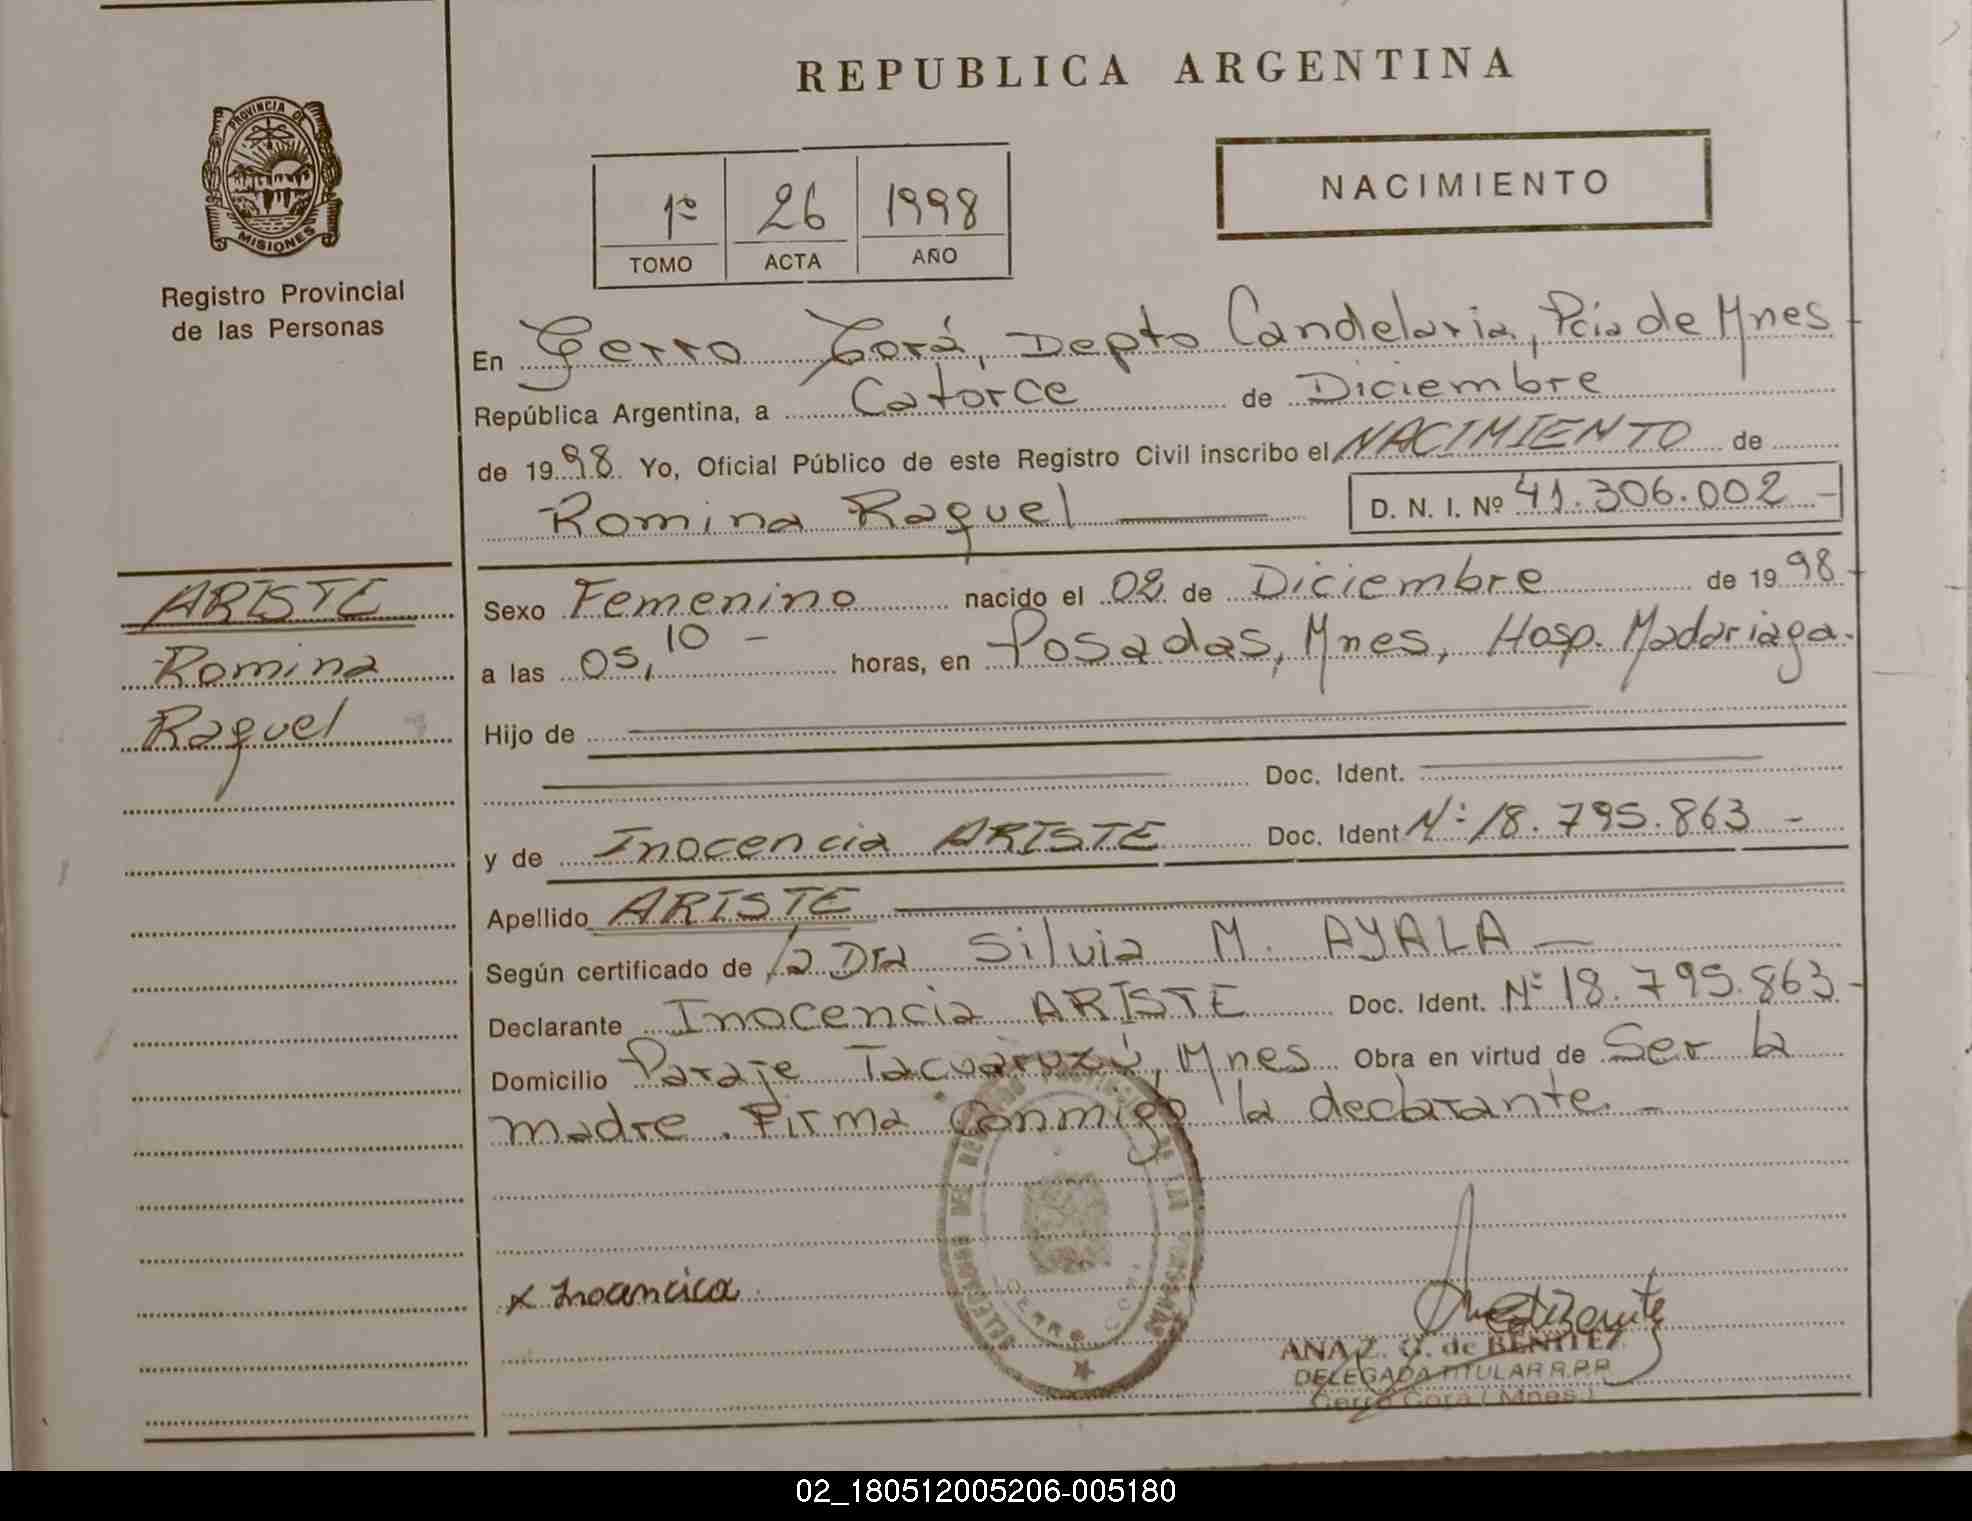 REPUBLICA ARGENTINA
PROVINCIA DE
MISIONES
Registro Provincial
de las Personas
1º 26 1998
TOMO ACTA AÑO
NACIMIENTO
En Cerro Corá, Depto Candelaria, Pcia de Mnes
República Argentina, a Catorce de Diciembre
de 1998 Yo, Oficial Público de este Registro Civil inscribo el NACIMIENTO de
Romina Raquel D. N. I. Nº 41.306.002 -
ARISTE
Romina
Raquel
Sexo Femenino nacido el 02 de Diciembre de 1998
a las 05,10 - horas, en Posadas, Mnes, Hosp. Madariaga.
Hijo de
Doc. Ident.
y de Inocencia ARISTE Doc. Ident Nº 18.795.863 -
Apellido ARISTE
Según certificado de la Dra Silvia M. AYALA -
Declarante Inocencia ARISTE Doc. Ident. Nº 18.795.863 -
Domicilio Paraje Tacuaruzú, Mnes Obra en virtud de Ser la
madre. Firma Conmigo la declarante. -
x Inocencica
ANA Z. G. de BENITEZ
DELEGADA TITULAR R.P.P.
Cerro Corá ( Mnes.)
02_180512005206-005180